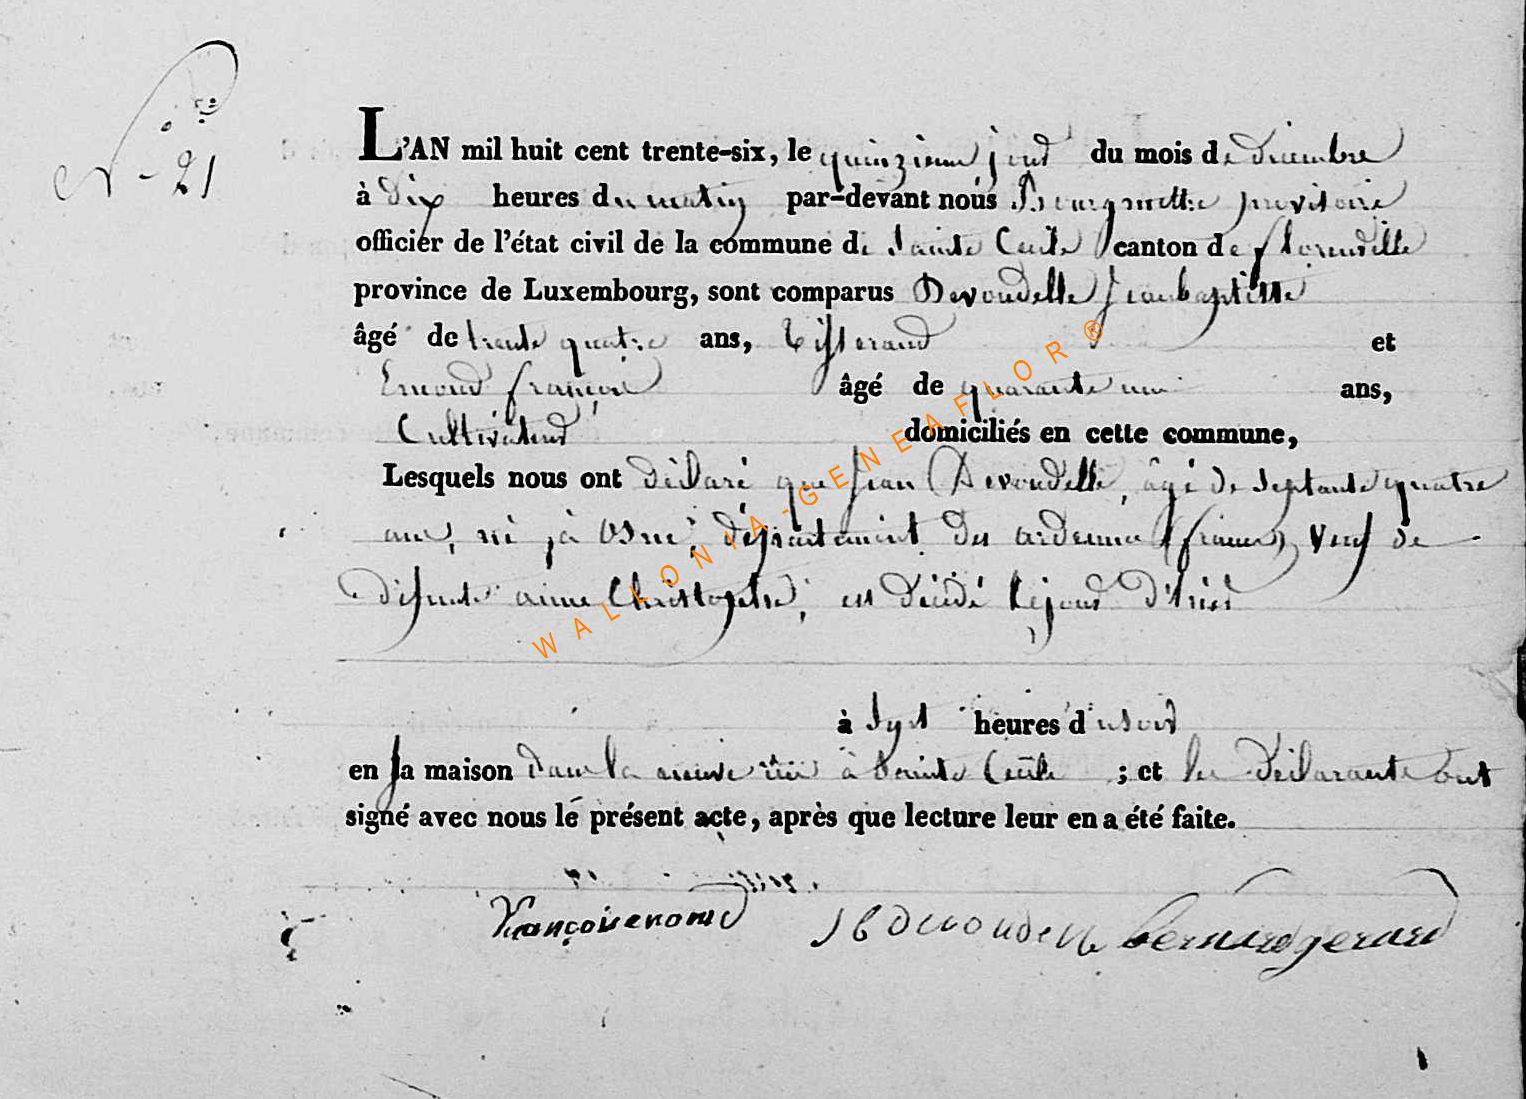 N° 21
L'AN mil huit cent trente-six, le quinzième jour du mois de décembre
à dix heures du matin par-devant nous Bourgmestre provisoire
officier de l'état civil de la commune de Sainte Cecile canton de florenville
province de Luxembourg, sont comparus Devoudelle Jean baptiste
âgé de trente quatre ans, tisserand et
Emond françois âgé de quarante un ans,
Cultivateur domiciliés en cette commune,
Lesquels nous ont déclaré que Jean Devoudelle, âgé de septante quatre
ans, né à Osne, département des ardennes (france) veuf de
défunte anne Christophe, est décédé le jour d'hier
à sept heures du soir
en sa maison dans la neuve rue à Sainte Cecile ; et les déclarants ont
signé avec nous le présent acte, après que lecture leur en a été faite.
françois emond J B devoudelle bernard gerard
WALLONIA-GENEAFLOR®